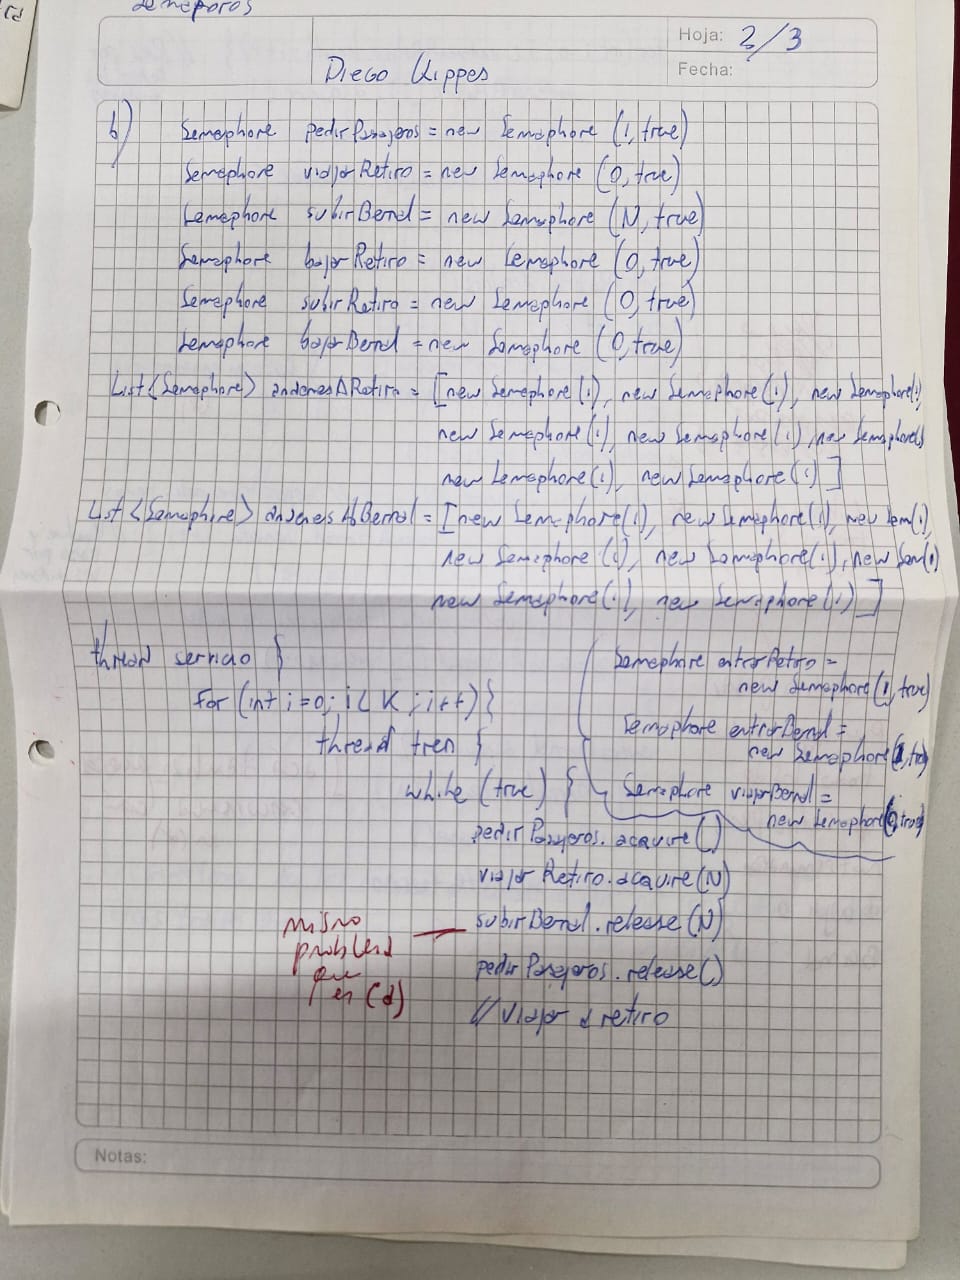 semáforos
Hoja: 2/3
Fecha:
Diego Kippes
b)
Semaphore pedirPasajeros = new Semaphore (1, true)
Semaphore viajarRetiro = new Semaphore (0, true)
Semaphore subirBernal = new Semaphore (N, true)
Semaphore bajarRetiro = new Semaphore (0, true)
Semaphore subirRetiro = new Semaphore (0, true)
Semaphore bajarBernal = new Semaphore (0, true)
List<Semaphore> andenesARetiro = [new Semaphore(1), new Semaphore(1), new Semaphore(1)
new Semaphore(1), new Semaphore(1), new Semaphore(1)
new Semaphore(1), new Semaphore(1)]
List<Semaphore> andenesABernal = [new Semaphore(1), new Semaphore(1), new Sem(1),
new Semaphore(1), new Semaphore(1), new Sem(1)
new Semaphore(1), new Semaphore(1)]
thread servicio {
for (int i=0; i < K; i++) {
thread tren {
while (true) {
Semaphore entrarRetiro =
new Semaphore(1, true)
Semaphore entrarBernal =
new Semaphore(1, true)
Semaphore viajarBernal =
new Semaphore(0, true)
pedirPasajeros.acquire()
viajarRetiro.acquire(N)
subirBernal.release(N)
pedirPasajeros.release()
// viajar a retiro
mismo
problema
que
en (a)
Notas: